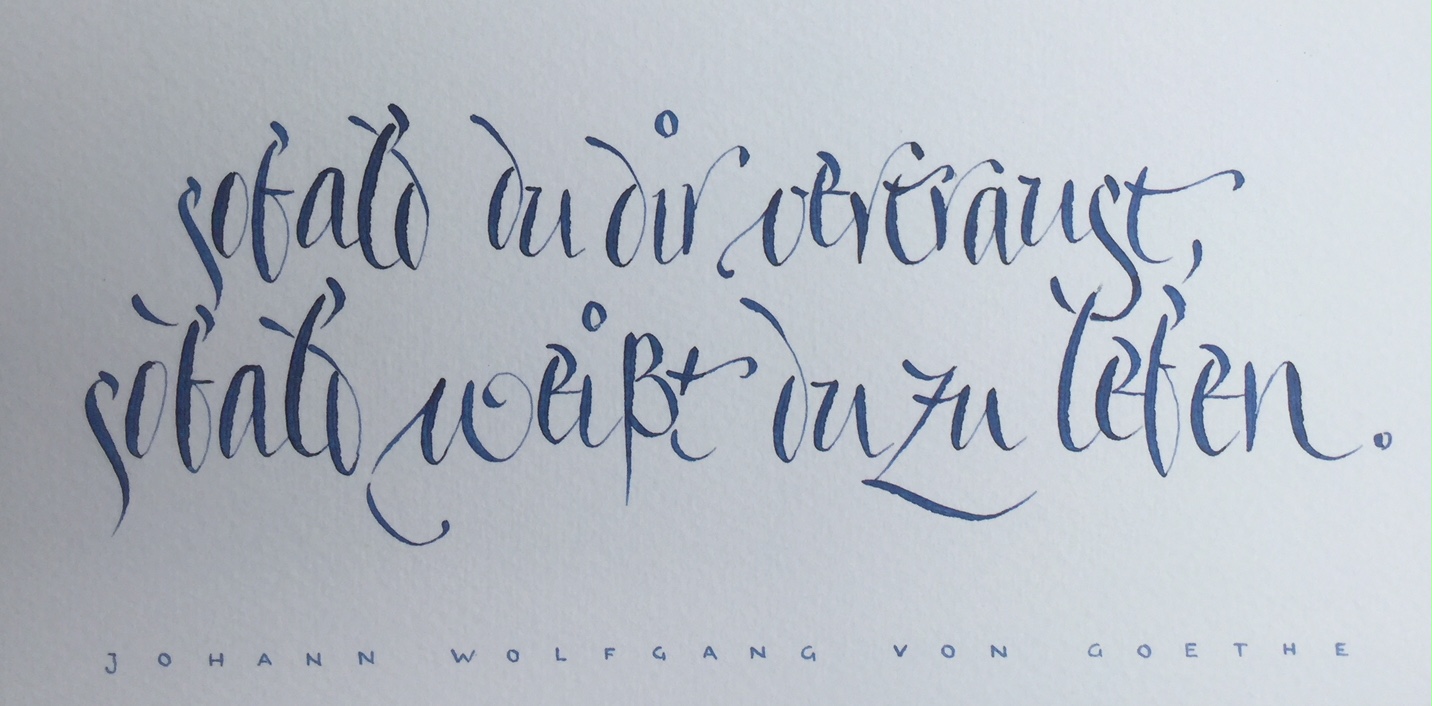 sobald du dir vertraust,
sobald weißt du zu leben.
JOHANN WOLFGANG VON GOETHE